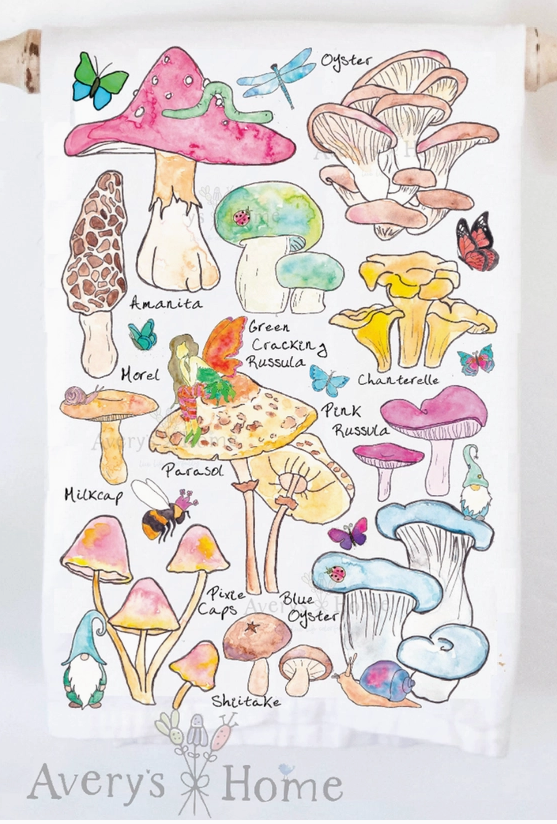 Oyster
Amanita
Green
Cracking
Russula
Morel
Chanterelle
Pink
Russula
Parasol
Milkcap
Pixie
Caps
Blue
Oyster
Shiitake
Avery's Home